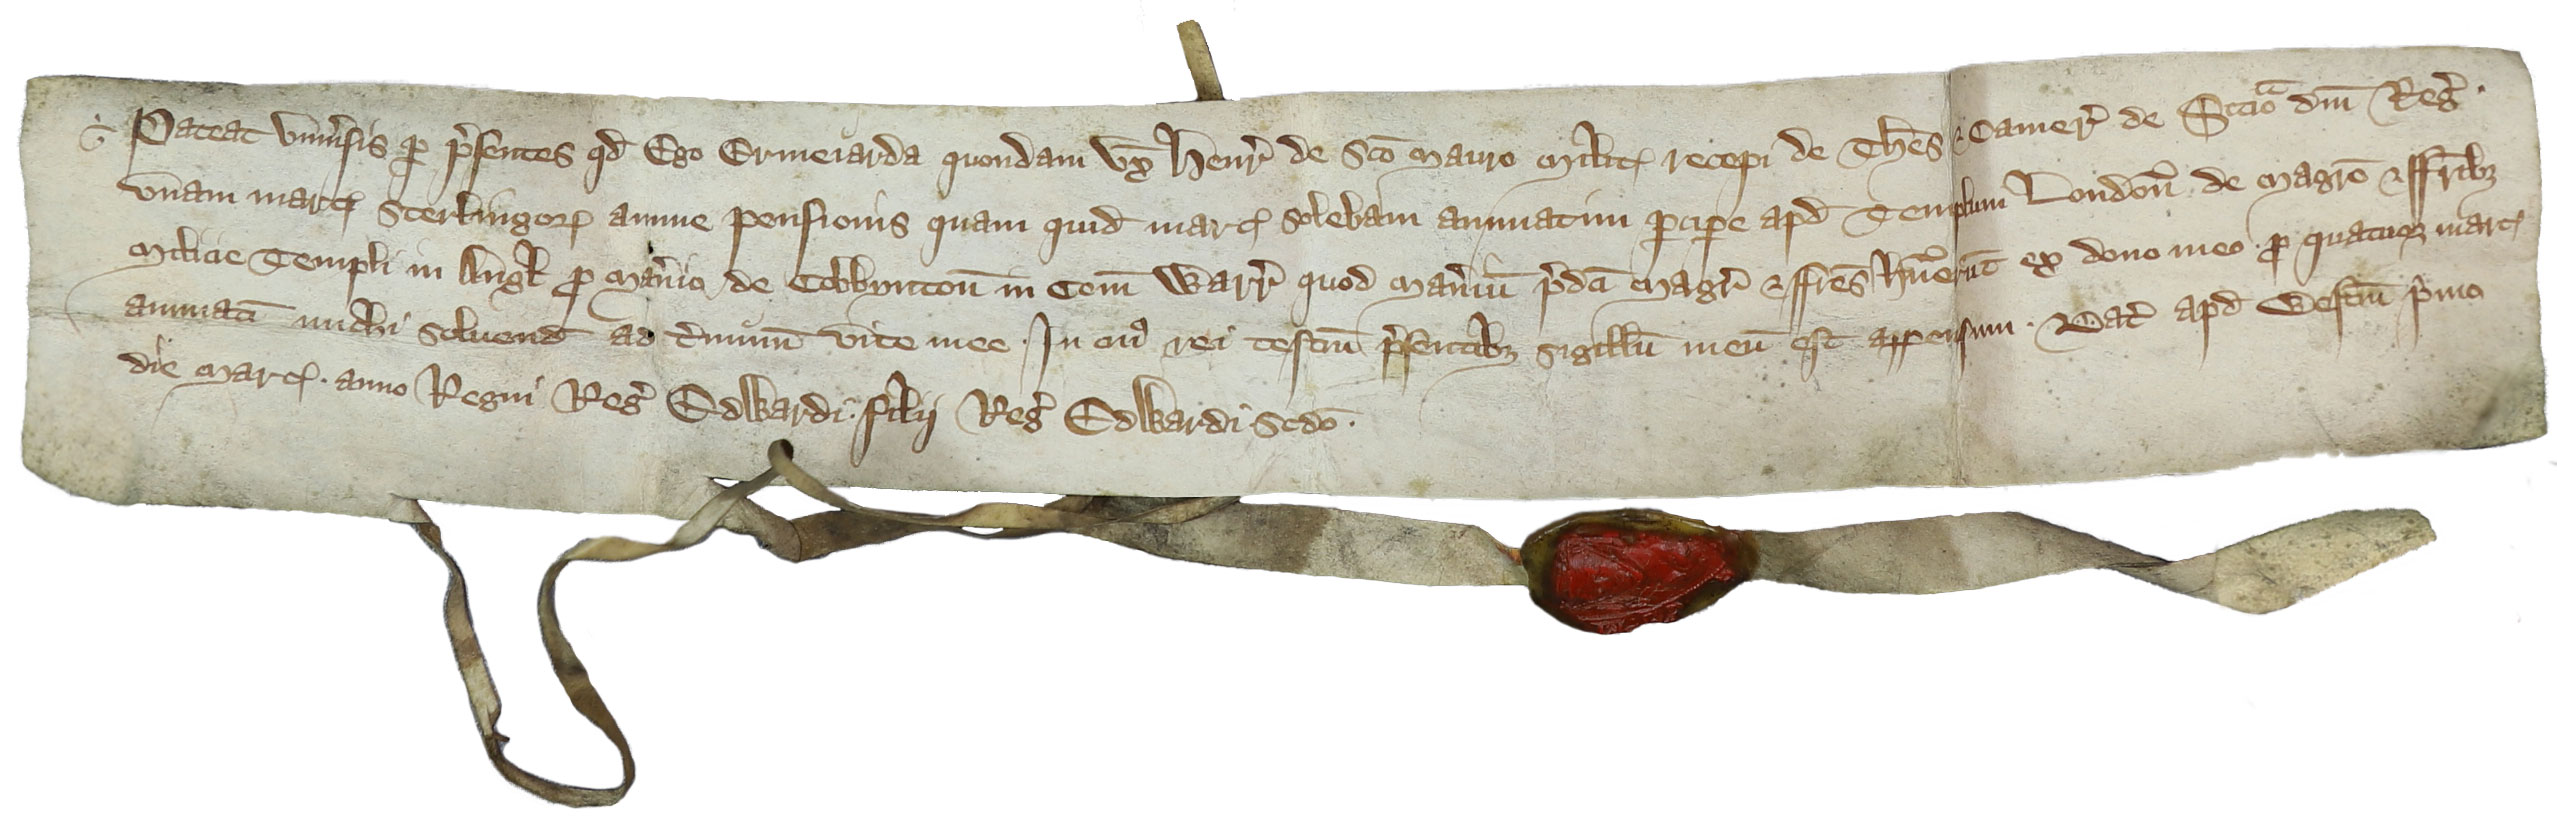 Pateat univ̄sis ꝑ p̄sentes qd̄ Ego Ermeiarda quondam Vx̄ Henr̄ de Sc̄o Mauro Milit̄ recepi de Thes̄ ⁊ Camer̄ de Sccīo dn̄i Reḡ.
vnam marc̄ Sterlingor̄ annue pensionis quam quid̄ marc̄ solebam annuatim ꝑcipe apd̄ Templum London̄ de Magr̄o ⁊ ffr̄ibꝫ
Milicie Templi in Angl̄ ꝓ Man̄io de Cobbynton̄ in Com̄ Warr̄ quod Man̄iū p̄dc̄i Magr̄ ⁊ ffr̄es hūerūt ex dono meo. ꝓ quatuor marc̄
annuatī michi soluend̄ ad t̄minū vite mee. In cuiꝰ rei testiū p̄sentibꝫ sigillū meū est appensum. Dat̄ apd̄ Westm̄ p̄mo
die Marc̄. anno Regni Reḡ Edwardi. filij Reḡ Edwardi Scdō.